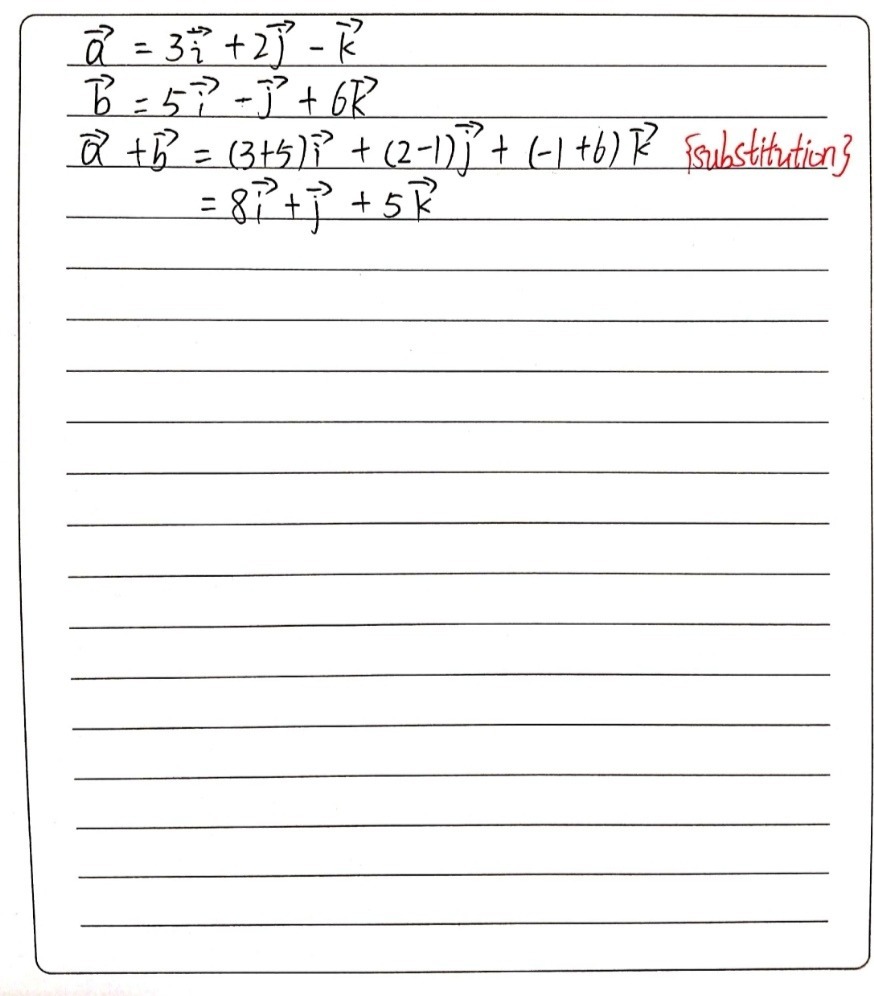 a⃗ = 3i⃗ + 2j⃗ - k⃗
b⃗ = 5i⃗ - j⃗ + 6k⃗
a⃗ + b⃗ = (3+5)i⃗ + (2-1)j⃗ + (-1+6)k⃗ {substitution}
= 8i⃗ + j⃗ + 5k⃗